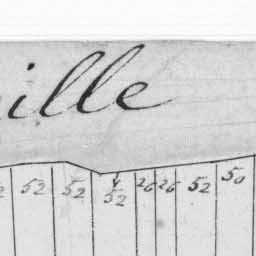 ille
52 52 52 26 26 52 50